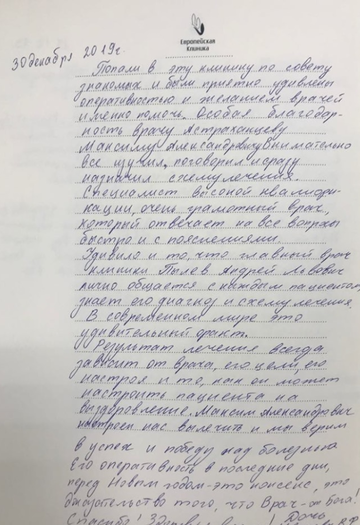 Европейская
Клиника
30 декабря 2019г
Попали в эту клинику по совету
знакомых и были приятно удивлены
оперативностью и желанием врачей
именно помочь. Особая благодар-
ность врачу Астраханцеву
Максиму Александровичу внимательно
все изучил, поговорил и сразу
назначил схему лечения.
Специалист высокой квалифи-
кации, очень грамотный врач,
который отвечает на все вопросы
быстро и с пояснениями.
Удивило и то, что главный врач
клиники Пылев Андрей Львович
лично общается с каждым пациентом,
знает его диагноз и схему лечения.
В современном мире это
удивительный факт.
Результат лечения всегда
зависит от врача, его цели, его
настроя и то, как он может
настроить пациента на
выздоровление. Максим Александрович
настроен нас вылечить и мы верим
в успех и победу над болезнью
Его оперативность в последние дни,
перед Новым годом - это нонсенс, это
доказательство того, что Врач от Бога!
Спасибо!